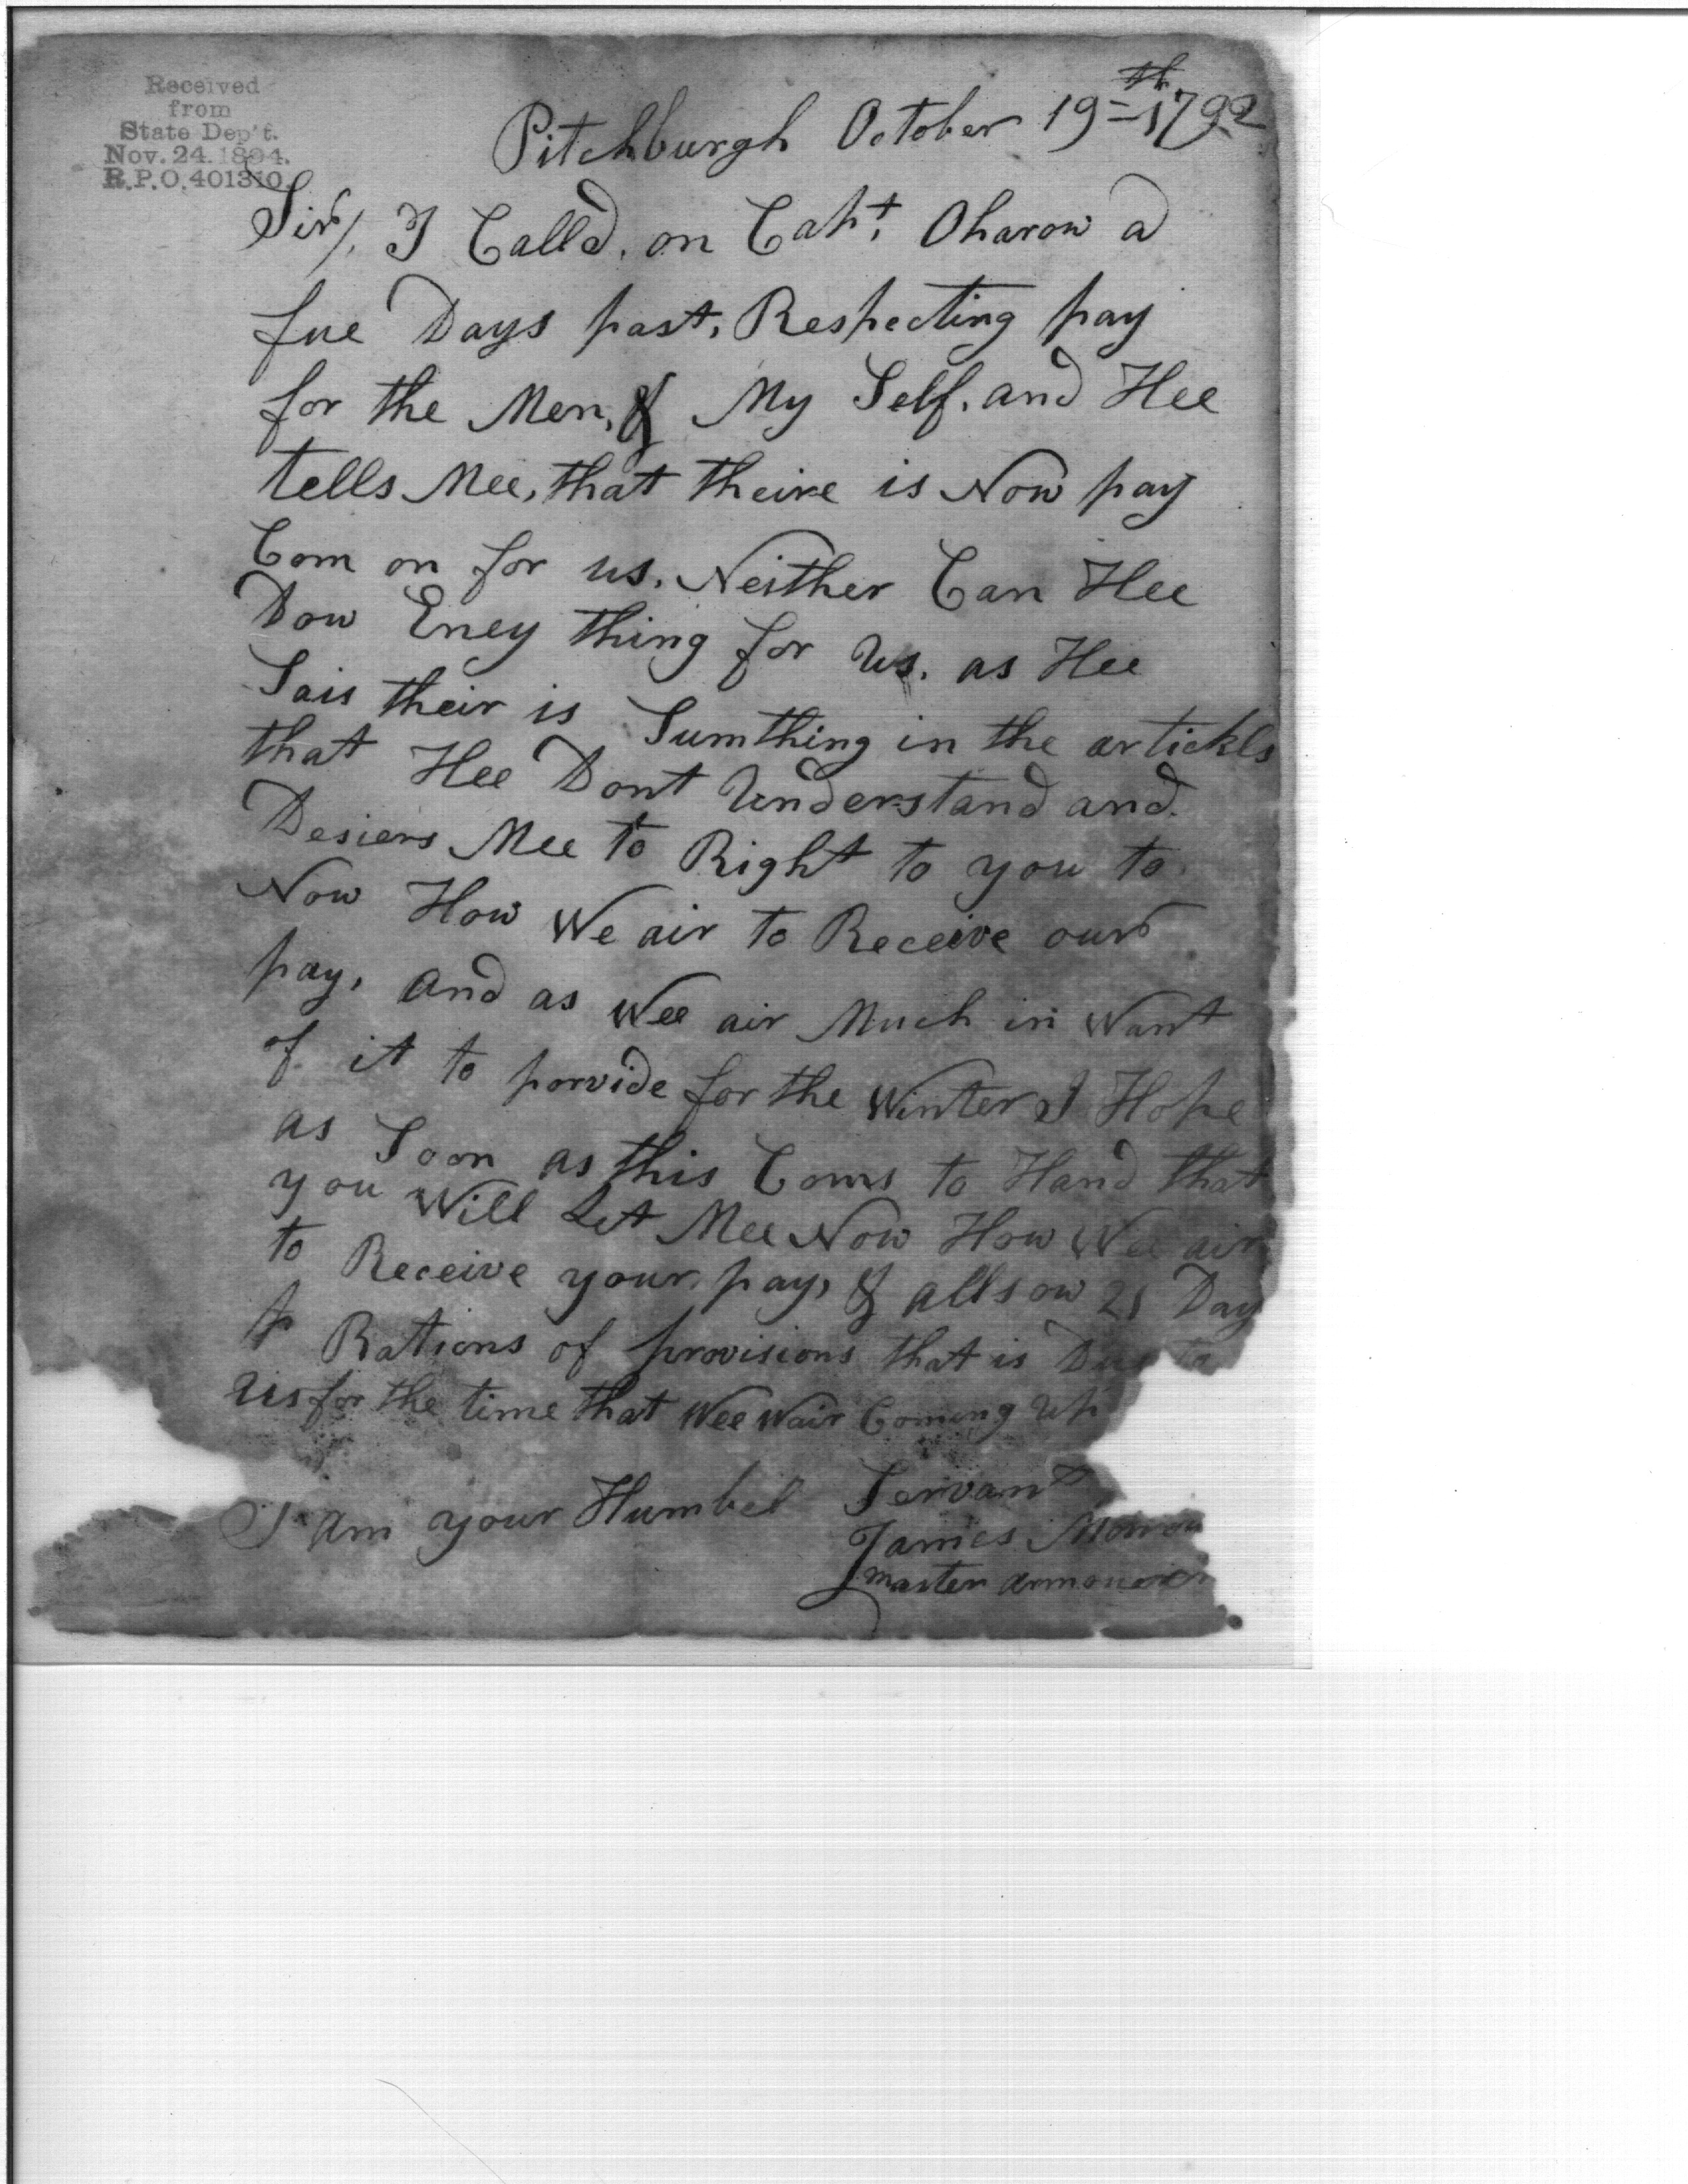 Received
from
State Dep't.
Nov. 24. 1894.
R.P.O. 401310.
Pitchburgh October 19th 1792
Sir/. I Calld. on Capt. Oharow a
fue Days past, Respecting pay
for the Men, & My Self. and Hee
tells Mee, that theire is Now pay
Com on for us. Neither Can Hee
Dow Eney thing for Us. as Hee
Sais their is Sumthing in the artickls
that Hee Dont Understand and.
Desiers Mee to Right to you to
Now How We air to Receive our
pay, and as Wee air Much in Want
of it to porvide for the Winter I Hope
as Soon as this Coms to Hand that
you Will Let Mee Now How Wee air
to Receive your pay, & allsow 21 Day
Rations of provisions that is Due to
Us for the time that Wee Wair Coming Up
I am your Humbel Servant
James
master armourer